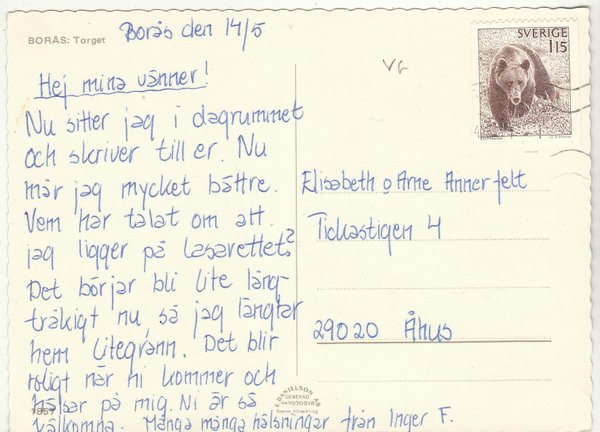 BORÅS: Torget
Borås den 14/5
Hej mina vänner!
Nu sitter jag i dagrummet
och skriver till er. Nu
mår jag mycket bättre.
Vem har talat om att
jag ligger på lasarettet?
Det börjar bli lite lång-
tråkigt nu, så jag längtar
hem litegrann. Det blir
roligt när ni kommer och
hälsar på mig. Ni är så
välkomna. Många många hälsningar från Inger F.
VG
SVERIGE
115
Elisabeth o Arne Annerfelt
Tickastigen 4
29020 Åhus
1857
E. DANIELSON AB
GENEVAD
0430/70218
Svensk tillverkning